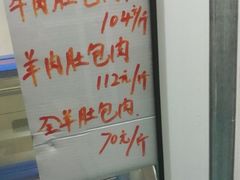 牛肉肚包肉
104元/斤
羊肉肚包肉
112元/斤
全羊肚包肉
70元/斤